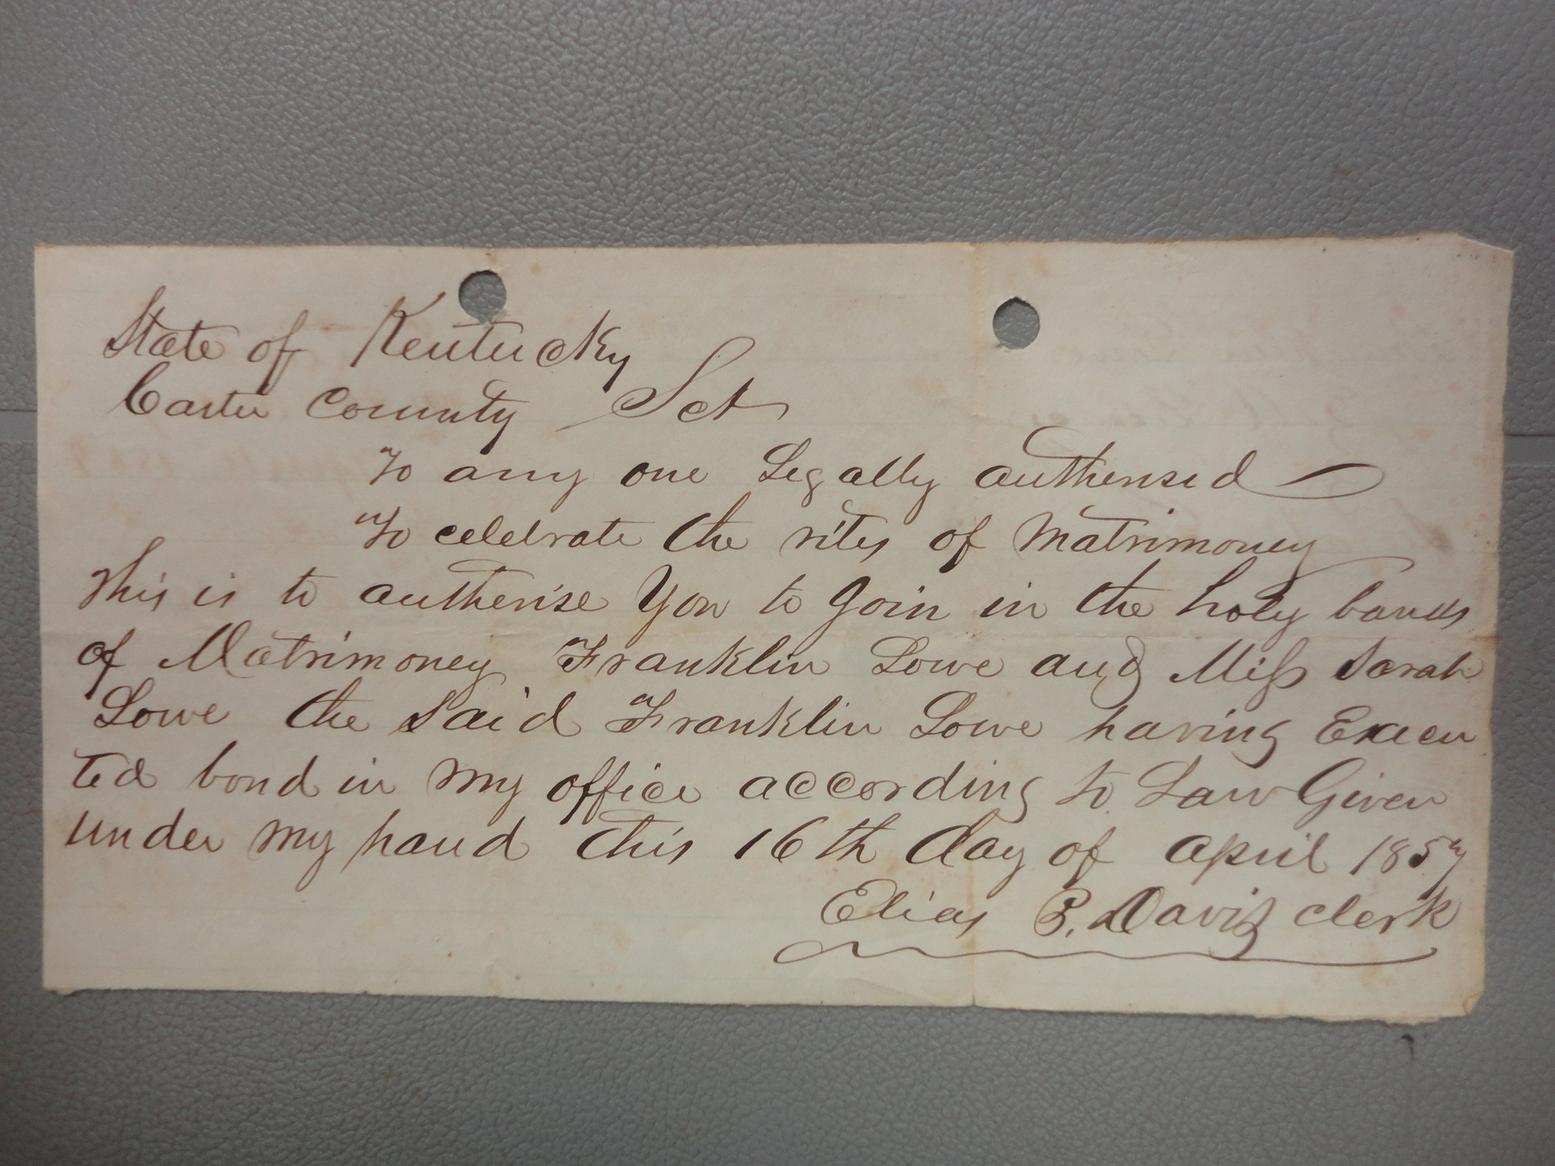 State of Kentucky
Carter County Sct
To any one Legally autherised
To celebrate the rites of Matrimoney
This is to autherise You to Join in the holy bands
of Matrimoney Franklin Lowe and Miss Sarah
Lowe the Said Franklin Lowe having Execu
ted bond in my office according to Law Given
under my hand this 16th day of April 1857
Elias P. Davis clerk